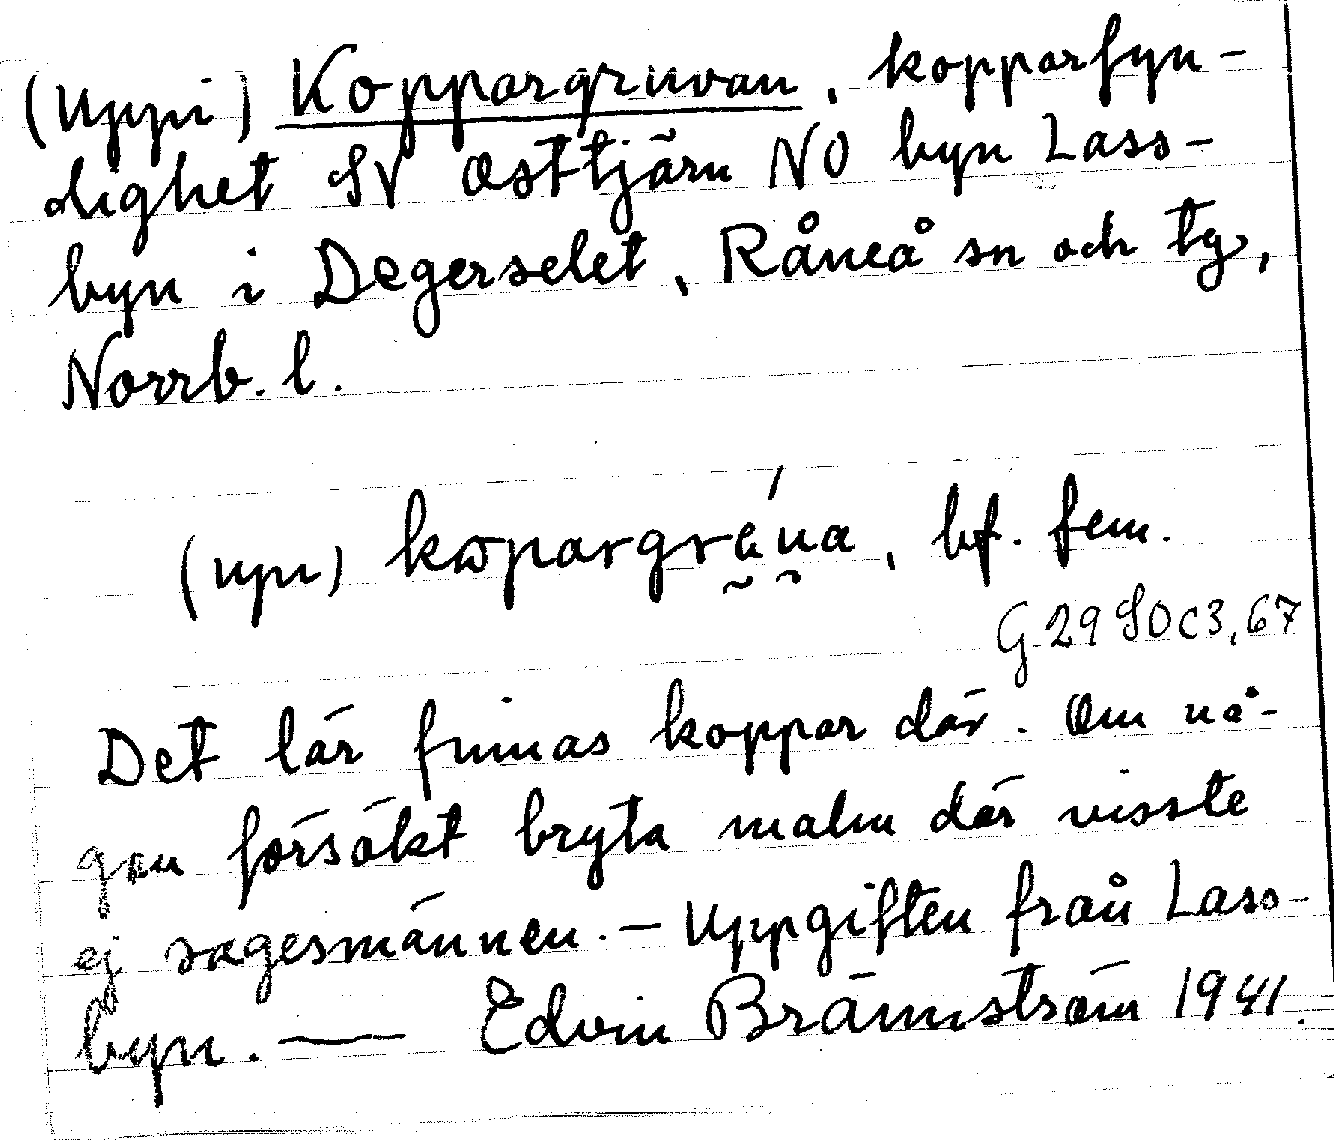 (Uppi) Koppargruvan, kopparfyn-
dighet SV Osttjärn NO byn Lass-
byn i Degerselet, Råneå sn och tg,
Norrb. l.
(upi) kωpargrʉ́na, bf. fem.
G 29 SOC3,67
Det lär finnas koppar där. Om nå-
gon försökt bryta malm där visste
ej sagesmännen. – Uppgiften från Lass-
byn. — Edvin Brännström 1941.